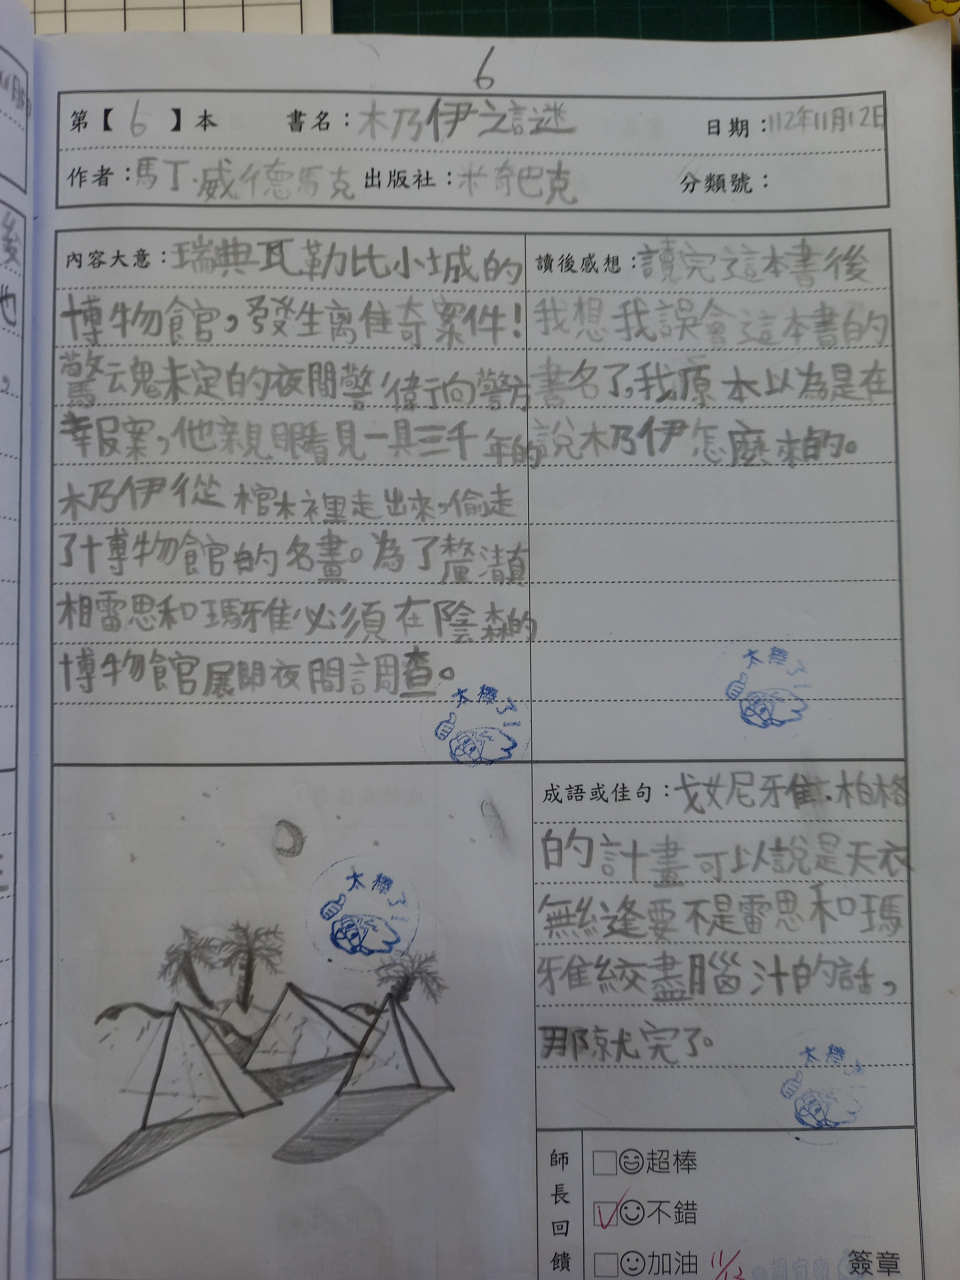 6
第【 6 】本 書名：木乃伊之謎 日期：112年11月12日
作者：馬丁.威德馬克 出版社：米奇巴克 分類號：
內容大意：瑞典瓦勒比小城的
博物館，發生離奇案件！
驚魂未定的夜間警衛向警方
報案，他親眼看見一具三千年的
木乃伊從棺木裡走出來，偷走
了博物館的名畫。為了釐清真
相雷思和瑪雅必須在陰森的
博物館展開夜間調查。
太棒了
讀後感想：讀完這本書後
我想我誤會這本書的
書名了，我原本以為是在
說木乃伊怎麼來的。
太棒了
太棒了
成語或佳句：戈妮雅.柏格
的計畫可以說是天衣
無縫要不是雷思和瑪
雅絞盡腦汁的話，
那就完了。
太棒了
師長回饋
超棒
不錯
加油 11/13 簽章